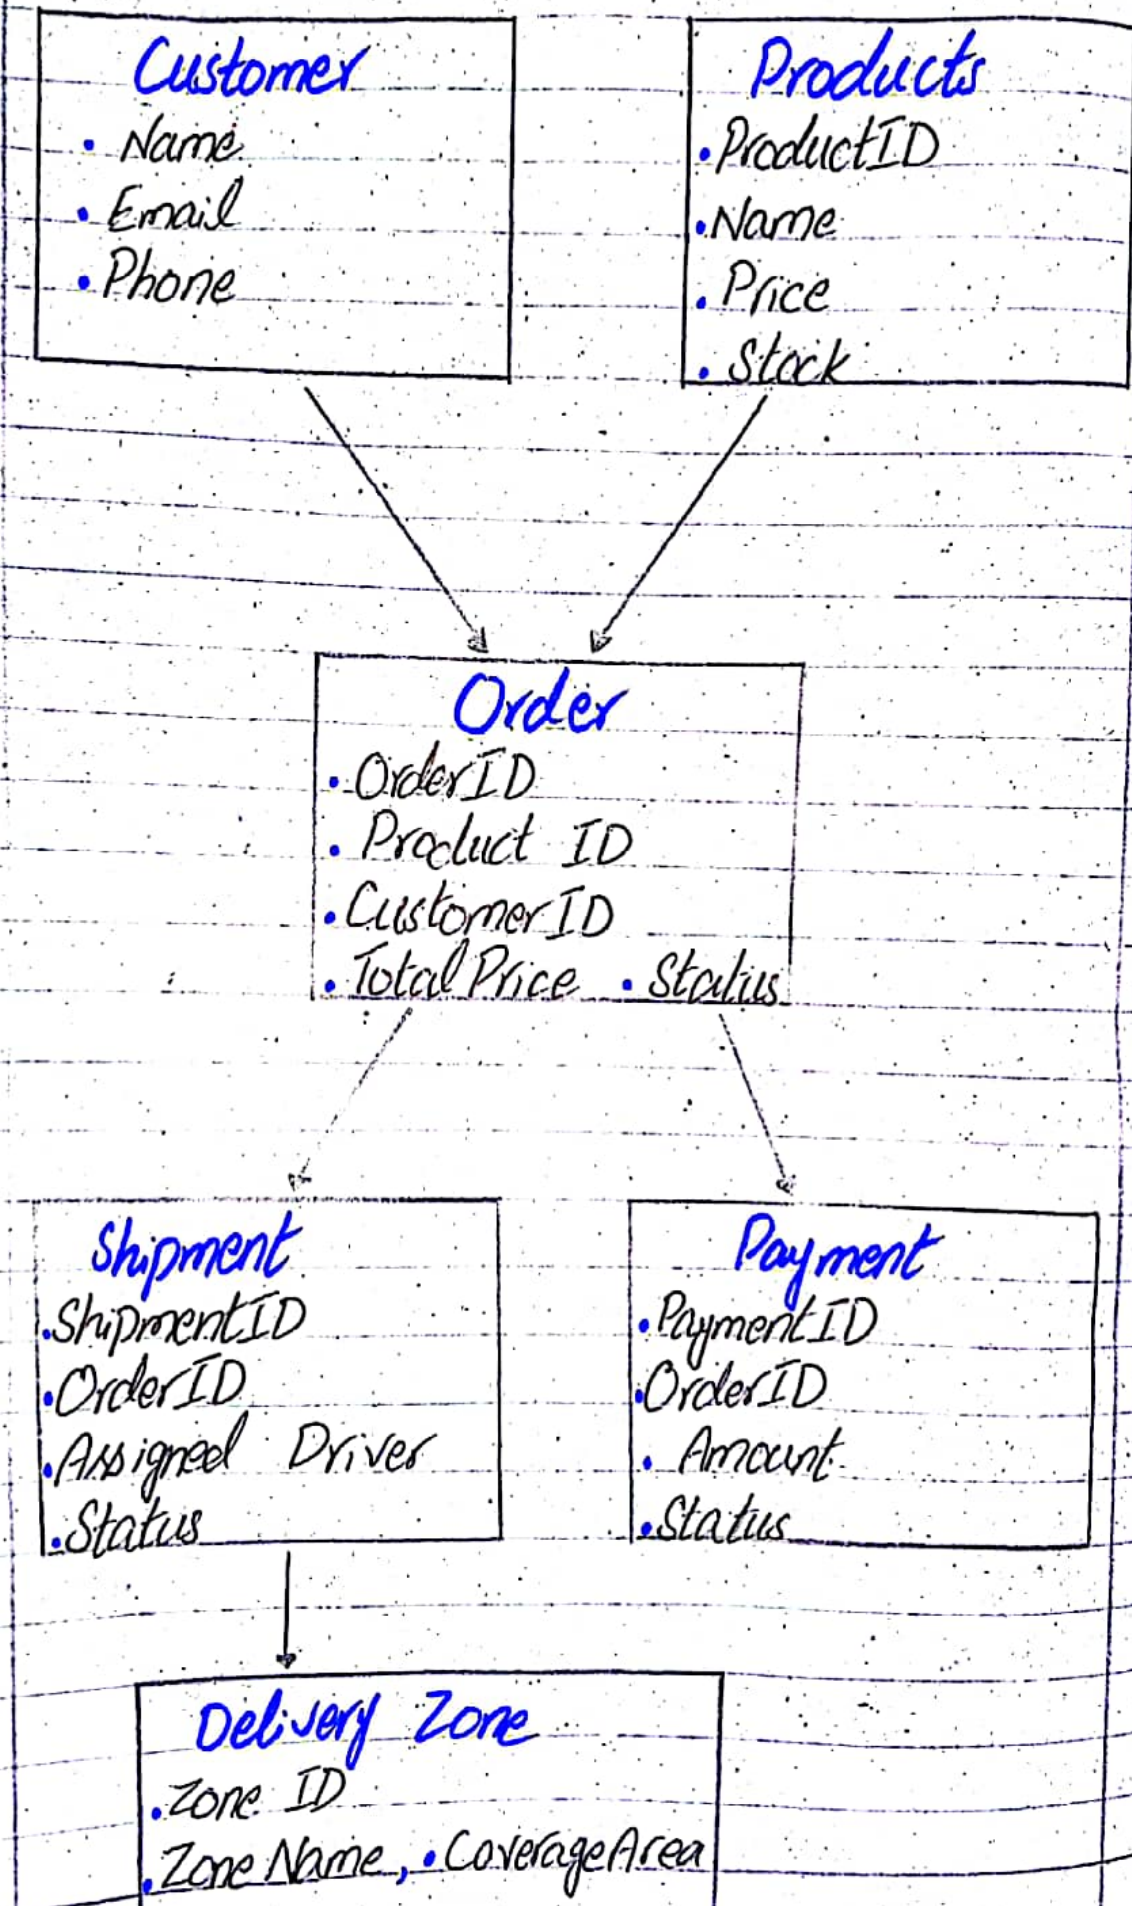 Customer
• Name
• Email
• Phone
Products
• ProductID
• Name
• Price
• Stock
Order
• OrderID
• Product ID
• CustomerID
• Total Price • Status
Shipment
• ShipmentID
• OrderID
• Assigned Driver
• Status
Payment
• PaymentID
• OrderID
• Amount
• Status
Delivery Zone
• Zone ID
• Zone Name, • CoverageArea